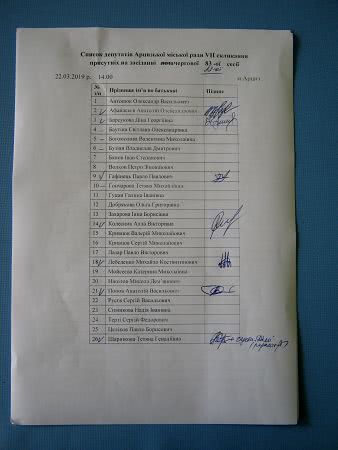 Список депутатів Арцизької міської ради VII скликання
присутніх на засіданні позачергової сесії
22.03.2019 р. 14.00 м.Арциз
№ з/п Прізвище ім'я по батькові Підпис
1 Антонюк Олександр Васильович
2 Афанасьєв Анатолій Олександрович
3 Барсукова Діна Георгіївна
4 Баутіна Світлана Олександрівна
5 Боголєпова Валентина Миколаївна
6 Бухна Владислав Дмитрович
7 Іван Степанович
8 Волков Петро
9 Гафинець Павло Павлович
10 Гончарова Тетяна Михайлівна
11 Гукан Галина Іванівна
12 Добрякова Ольга Григорівна
13 Захарова Інна Борисівна
14 Колєсник Алла Вікторівна
15 Кривцов Валерій Миколайович
16 Кривцов Сергій Миколайович
17 Лазар Павло Вікторович
18 Лебеденко Михайло Костянтинович
19 Мойсеєва Катерина Миколаївна
20 Микола Дем'янович
21 Попов Анатолій Васильович
22 Русєв Сергій Васильович
23 Надія Іванівна
24 Терзі Сергій Федорович
25 Целіков Павло Борисович
26 Шарикова Тетяна Геннадіївна